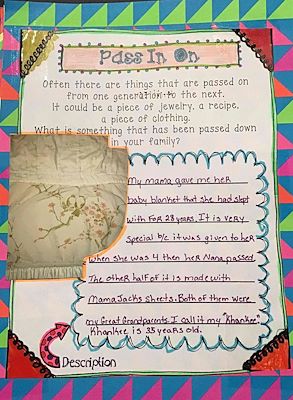 Pass In On
Often there are things that are passed on
from one generation to the next.
It could be a piece of jewelry, a recipe,
a piece of clothing.
What is something that has been passed down
in your family?
My mama gave me her
baby blanket that she had slept
with for 28 years. It is very
special b/c it was given to her
when she was 4 then her Nana passed.
The other half of it is made with
MamaJacks sheets. Both of them were
my Great Grandparents. I call it my "Khankee".
Khankee is 33 years old.
Description